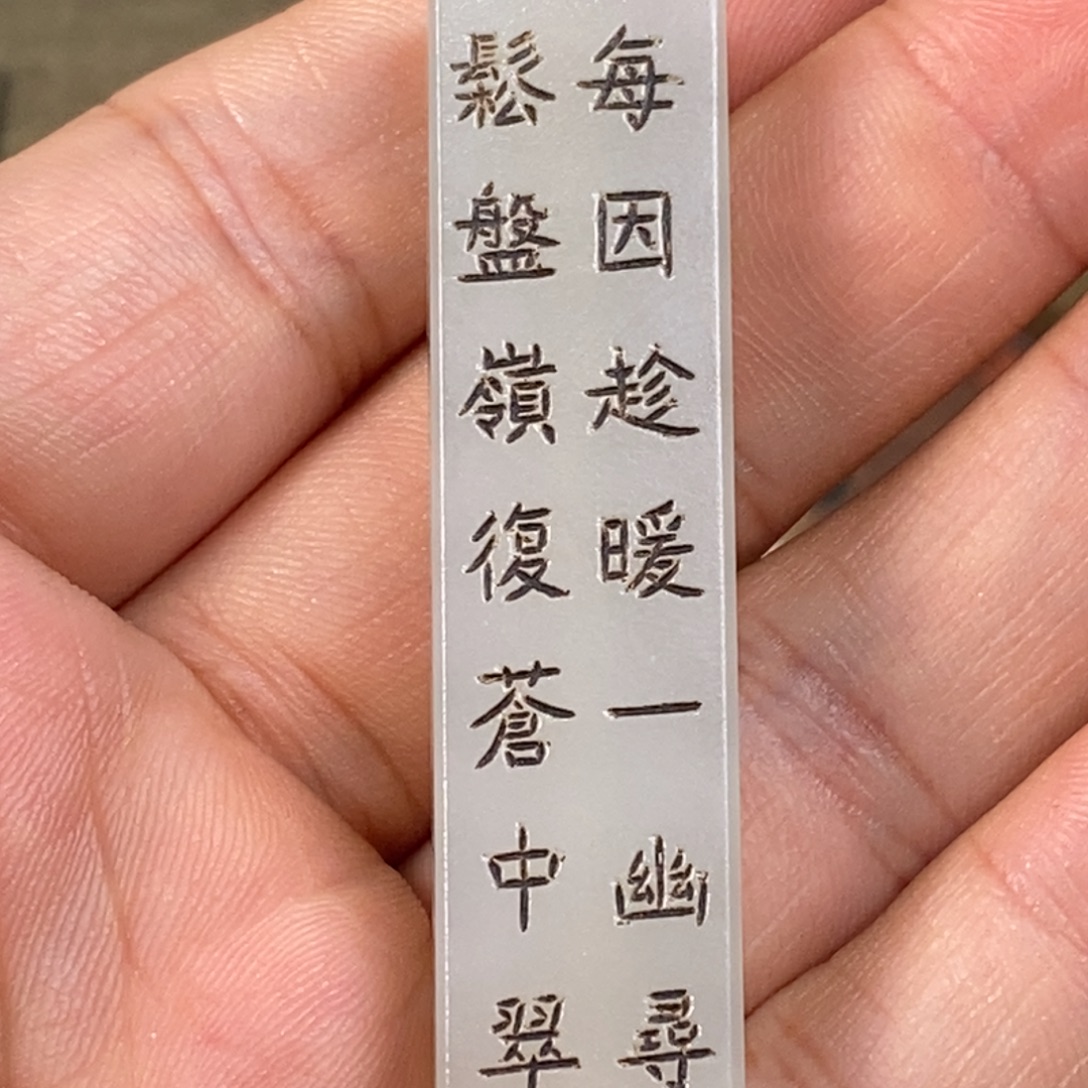 每因趁暖一幽尋
鬆盤嶺復蒼中翠